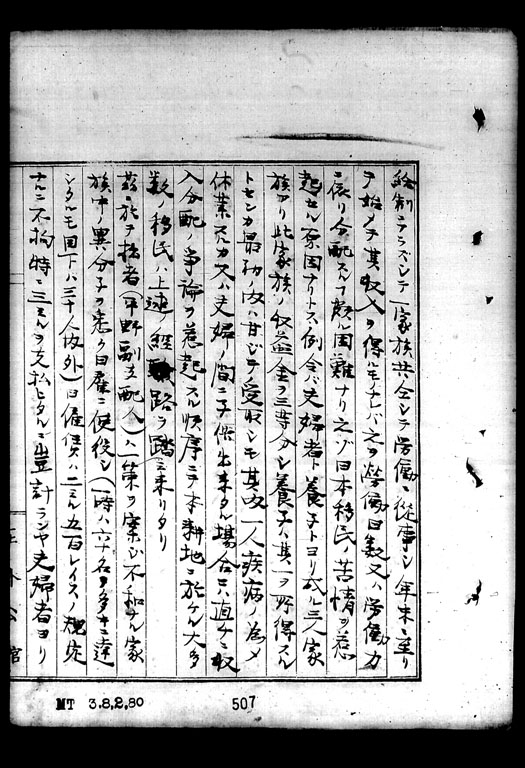 給制ニアラズシテ一家族共仝シテ労働ニ従事シ年末ニ至リ
テ始メテ其収入ヲ得ルモノナレバ之ヲ労働日数又ハ労働力
ニ依リ分配スルハ頗ル困難ナリ之ゾ日本移民ノ苦情ヲ惹
起セル原因ナリトス例令バ夫婦者ト養子トヨリ成ル三人家
族アリ此家族ノ収益金ヲ三等分シ養子ハ其一ヲ所得スル
トセンカ最初ノ内ハ甘ジテ受取シモ其内一人疾病ノ為メ
休業スルカ又ハ夫婦ノ間ニ子供出来タル場合ニハ直チニ収
入分配ノ争論ヲ惹起スル順序ニテ本耕地ニ於ケル大多
数ノ移民ハ上述ノ経験路ヲ踏ミ来リタリ
茲ニ於テ拙者(平野副支配人)ハ一策ヲ案ジ不和ナル家
族中ノ異分子ヲ悉ク日雇ニ使役シ(一時ハ六十名ノ多キニ達
シタルモ目下ハ三十人内外)日雇賃ハ二ミル五百レイスノ規定
ナルニ不拘特ニ三ミルヲ支払ヒタルニ豈計ランヤ夫婦者ヨリ
在外公館
MT 3.8.2.80
507